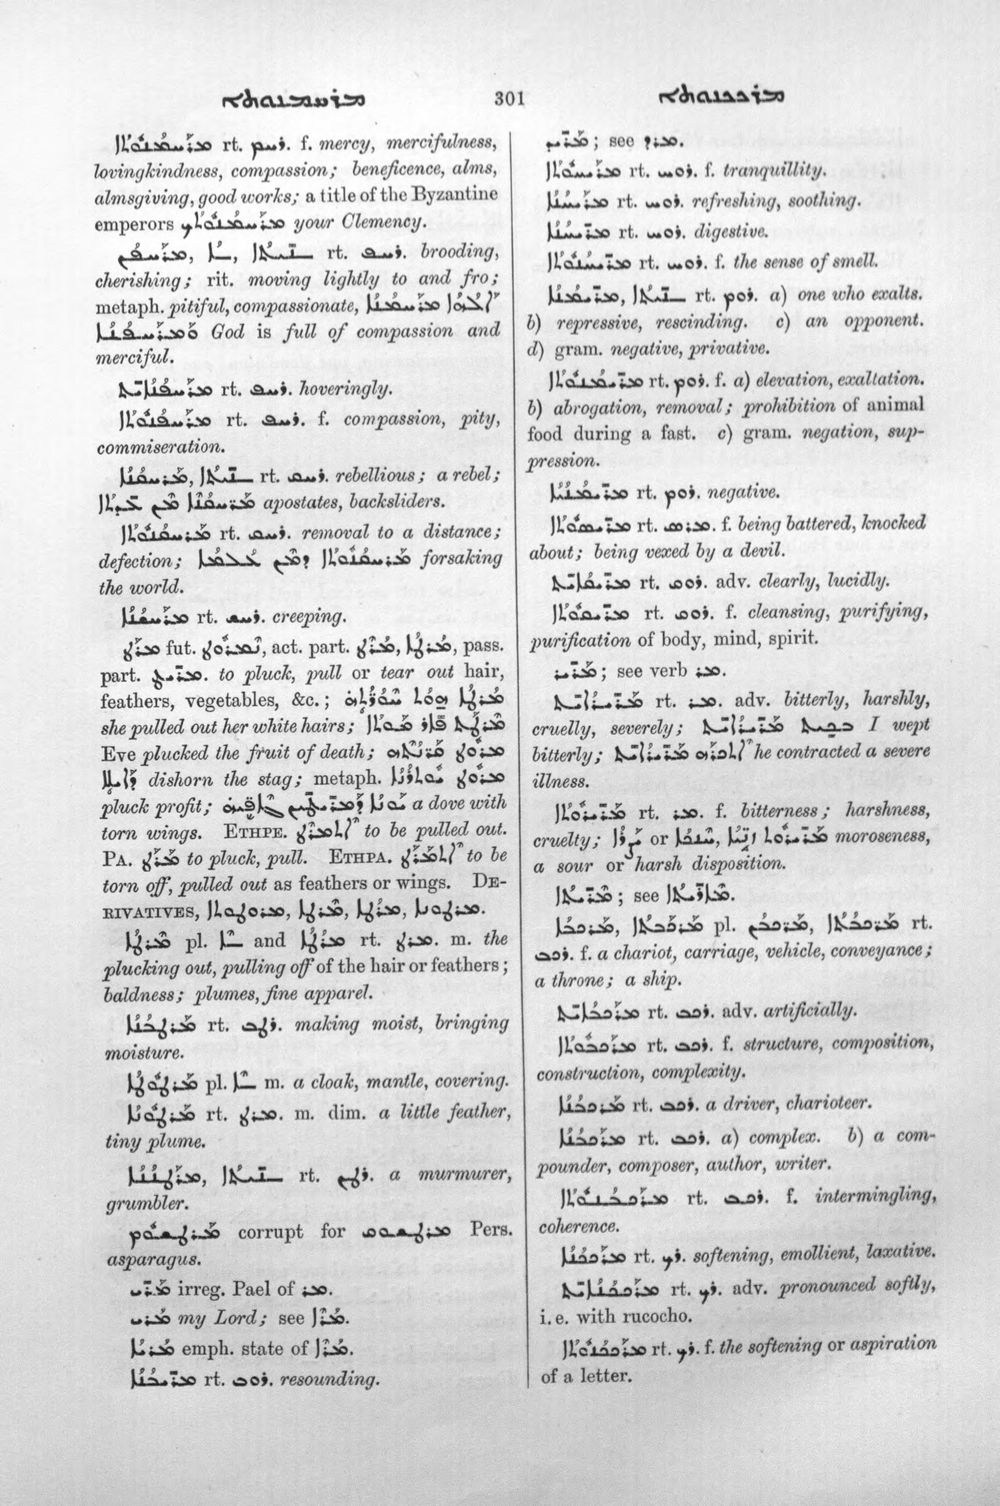 ܡܪܚܡܢܘܬܐ 301 ܡܪܟܟܢܘܬܐ
ܡܪܚܡܢܘܬܐ rt. ܪܚܡ. f. mercy, mercifulness,
lovingkindness, compassion; beneficence, alms,
almsgiving, good works; a title of the Byzantine
emperors ܡܪܚܡܢܘܬܟ your Clemency.
rt. ܪܚܦ. brooding,
cherishing; rit. moving lightly to and fro;
metaph. pitiful, compassionate, ܐܠܗܐ ܡܪܚܡܢܐ
ܘܡܪܚܦܢܐ God is full of compassion and
merciful.
ܡܪܚܦܢܐܝܬ rt. ܪܚܦ. hoveringly.
ܡܪܚܦܢܘܬܐ rt. ܪܚܦ. f. compassion, pity,
commiseration.
ܡܪܚܩܢܐ, ܢܝܬܐ rt. ܪܚܩ. rebellious; a rebel;
ܡܪܚܩܢܐ ܡܢ ܥܕܬܐ apostates, backsliders.
ܡܪܚܩܢܘܬܐ rt. ܪܚܩ. removal to a distance;
defection; ܡܪܚܩܢܘܬܐ ܕܡܢ ܥܠܡܐ forsaking
the world.
ܡܪܚܫܢܐ rt. ܪܚܫ. creeping.
ܡܪܛ fut. ܢܡܪܘܛ, act. part. ܡܪܛ, ܡܪܛܐ, pass.
part. ܡܪܝܛ. to pluck, pull or tear out hair,
feathers, vegetables, &c.; ܡܪܛܐ ܗܘܬ ܣܥܪܗ
she pulled out her white hairs; ܡܪܛܬ ܦܐܪ ܡܘܬܐ
Eve plucked the fruit of death; ܡܪܘܛ
dishorn the stag; metaph. ܡܪܘܛ ܝܘܬܪܢܐ
pluck profit; ܝܘܢܐ ܕܡܪܝܛܝܢ ܓܦܝܗ a dove with
torn wings. ETHPE. ܐܬܡܪܛ to be pulled out.
PA. ܡܪܛ to pluck, pull. ETHPA. ܐܬܡܪܛ to be
torn off, pulled out as feathers or wings. DE-
RIVATIVES, ܡܪܘܛܘܬܐ, ܡܪܛܐ, ܡܪܛܐ, ܡܪܛܘܢܐ.
ܡܪܛܐ pl. and ܡܪܛܐ rt. ܡܪܛ. m. the
plucking out, pulling off of the hair or feathers;
baldness; plumes, fine apparel.
ܡܪܛܒܢܐ rt. ܪܛܒ. making moist, bringing
moisture.
ܡܪܛܘܛܐ pl. m. a cloak, mantle, covering.
ܡܪܛܘܢܐ rt. ܡܪܛ. m. dim. a little feather,
tiny plume.
ܡܪܛܢܢܐ, ܢܝܬܐ rt. ܪܛܢ. a murmurer,
grumbler.
corrupt for Pers.
asparagus.
ܡܪܝ irreg. Pael of ܡܪ.
ܡܪܝ my Lord; see ܡܪܐ.
ܡܪܝܐ emph. state of ܡܪܐ.
ܡܪܝܒܢܐ rt. ܪܘܒ. resounding.
ܡܪܝܕ; see ܡܪܕ.
ܡܪܝܚܘܬܐ rt. ܪܘܚ. f. tranquillity.
ܡܪܝܚܢܐ rt. ܪܘܚ. refreshing, soothing.
ܡܪܝܚܢܐ rt. ܪܘܚ. digestive.
ܡܪܝܚܢܘܬܐ rt. ܪܘܚ. f. the sense of smell.
ܡܪܝܡܢܐ, ܡܪܝܡܢܝܬܐ rt. ܪܘܡ. a) one who exalts.
b) repressive, rescinding. c) an opponent.
d) gram. negative, privative.
ܡܪܝܡܢܘܬܐ rt. ܪܘܡ. f. a) elevation, exaltation.
b) abrogation, removal; prohibition of animal
food during a fast. c) gram. negation, sup-
pression.
ܡܪܝܡܢܝܐ rt. ܪܘܡ. negative.
ܡܪܝܣܘܬܐ rt. ܡܪܣ. f. being battered, knocked
about; being vexed by a devil.
ܡܪܝܩܐܝܬ rt. ܪܘܩ. adv. clearly, lucidly.
ܡܪܝܩܘܬܐ rt. ܪܘܩ. f. cleansing, purifying,
purification of body, mind, spirit.
ܡܪܝܪ; see verb ܡܪ.
ܡܪܝܪܐܝܬ rt. ܡܪ. adv. bitterly, harshly,
cruelly, severely; ܒܟܝܬ ܡܪܝܪܐܝܬ I wept
bitterly; ܐܬܟܪܗ ܡܪܝܪܐܝܬ he contracted a severe
illness.
ܡܪܝܪܘܬܐ rt. ܡܪ. f. bitterness; harshness,
cruelty; ܡܪܝܪܘܬ ܪܥܝܢܐ, or moroseness,
a sour or harsh disposition.
ܡܪܝܬܐ; see ܡܐܪܝܬܐ.
ܡܪܟܒܐ, ܡܪܟܒܬܐ pl. ܡܪܟܒܢ, ܡܪܟܒܬܐ rt.
ܪܟܒ. f. a chariot, carriage, vehicle, conveyance;
a throne; a ship.
ܡܪܟܒܐܝܬ rt. ܪܟܒ. adv. artificially.
ܡܪܟܒܘܬܐ rt. ܪܟܒ. f. structure, composition,
construction, complexity.
ܡܪܟܒܢܐ rt. ܪܟܒ. a driver, charioteer.
ܡܪܟܒܢܐ rt. ܪܟܒ. a) complex. b) a com-
pounder, composer, author, writer.
ܡܪܟܒܢܘܬܐ rt. ܪܟܒ. f. intermingling,
coherence.
ܡܪܟܟܢܐ rt. ܪܟ. softening, emollient, laxative.
ܡܪܟܟܢܐܝܬ rt. ܪܟ. adv. pronounced softly,
i. e. with rucocho.
ܡܪܟܟܢܘܬܐ rt. ܪܟ. f. the softening or aspiration
of a letter.